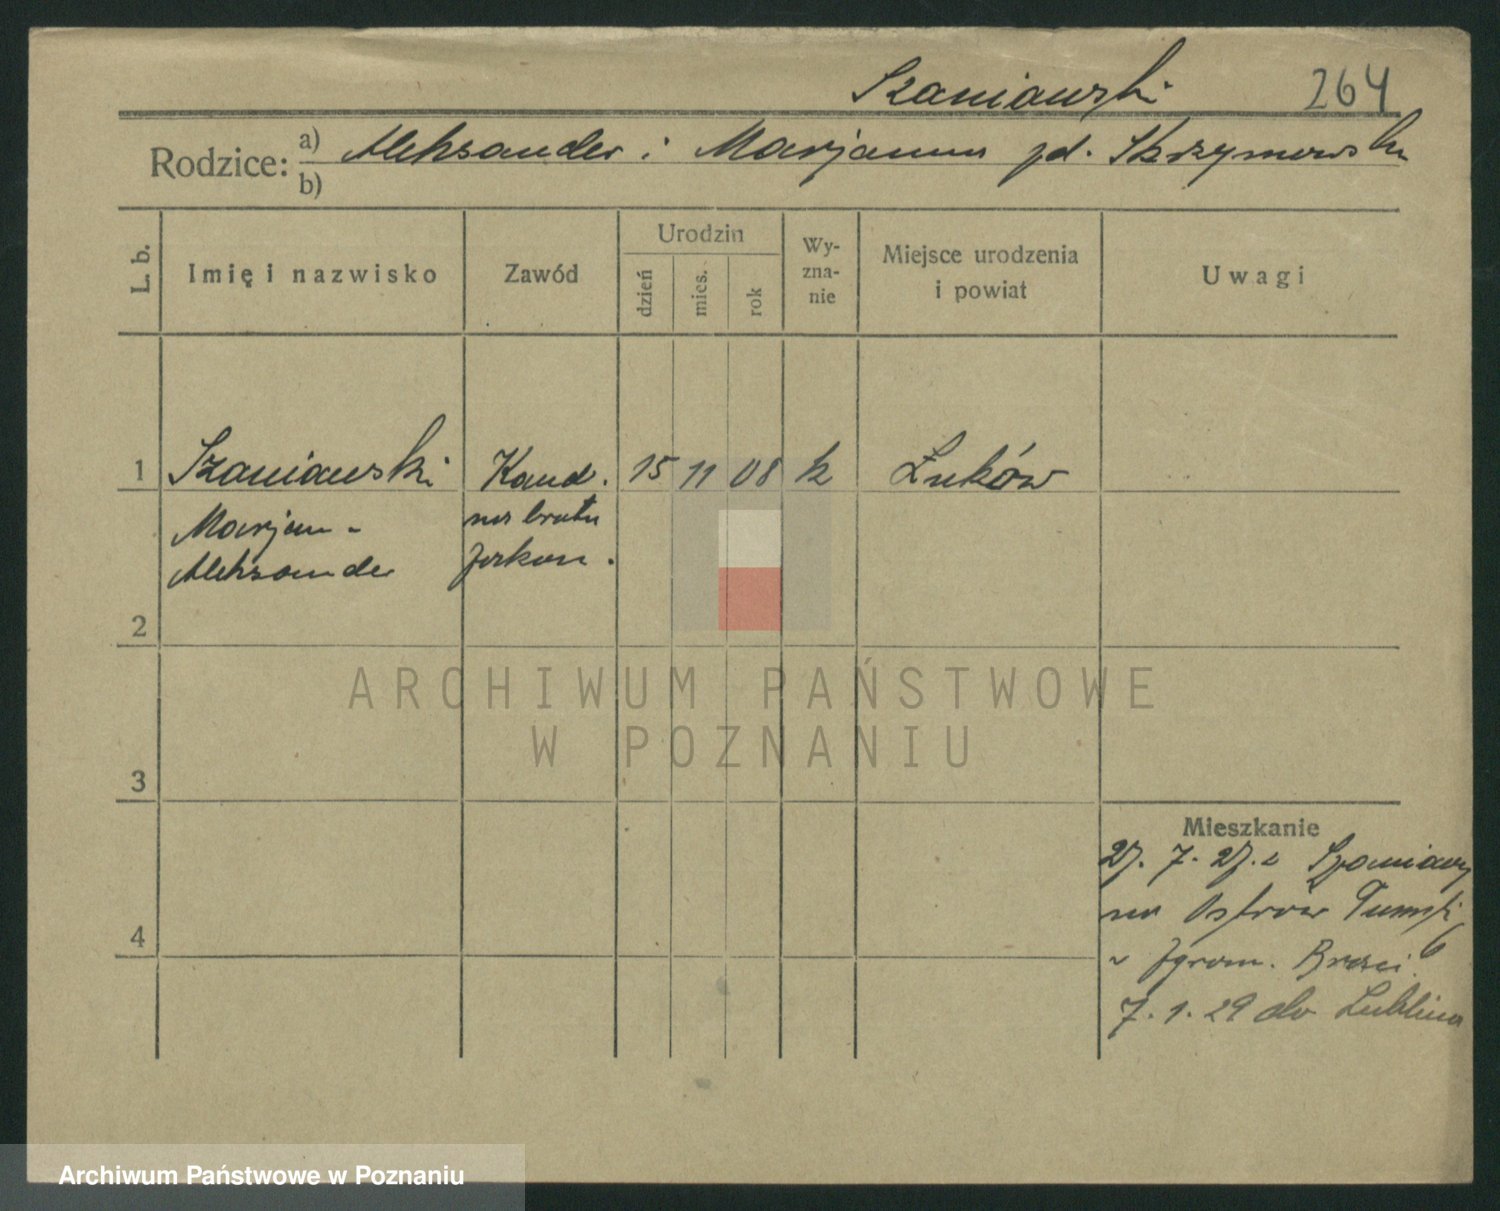 Szaniawski 264
Rodzice: a) Aleksander i Marjanna zd. Skrzymowska
b)
L. b.
Imię i nazwisko
Zawód
Urodzin
dzień
mies.
rok
Wy-
zna-
nie
Miejsce urodzenia
i powiat
Uwagi
1 Szaniawski Kand. 15 11 08 k Łuków
Marjan - na brata
Aleksander zakon.
2
3
4
Mieszkanie
27. 7. 27. z Szaniawy
na Ostrów Tumski 6
w Zgrom. Braci
7. 1. 29 do Lublina
ARCHIWUM PAŃSTWOWE
W POZNANIU
Archiwum Państwowe w Poznaniu